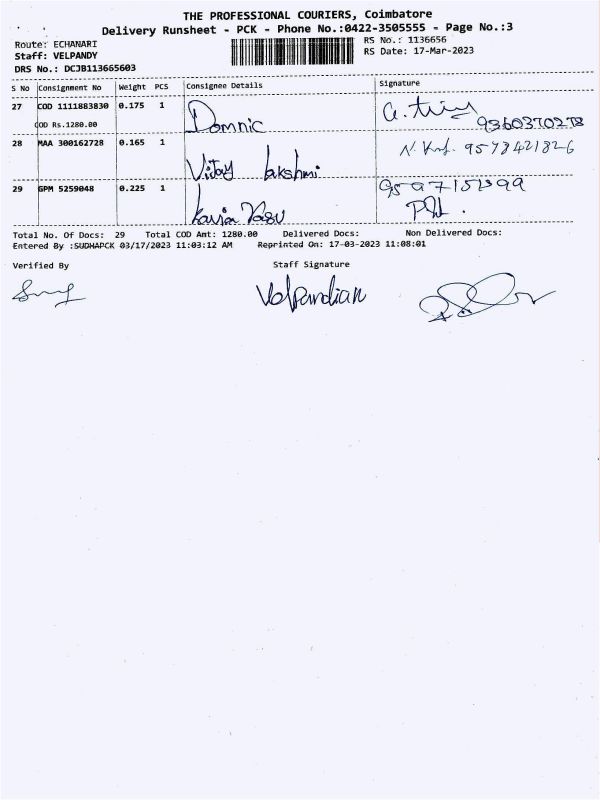 THE PROFESSIONAL COURIERS, Coimbatore
Delivery Runsheet - PCK - Phone No.:0422-3505555 - Page No.:3
Route: ECHANARI
Staff: VELPANDY
DRS No.: DCJB113665603
RS No.: 1136656
RS Date: 17-Mar-2023
S No Consignment No Weight PCS Consignee Details Signature
27 COD 1111883830 0.175 1 Domnic
COD Rs.1280.00 9360370278
28 MAA 300162728 0.165 1 Vijay lakshmi 9578421826
29 GPM 5259048 0.225 1 Kavia Vasu
Total No. Of Docs: 29 Total COD Amt: 1280.00 Delivered Docs: Non Delivered Docs:
Entered By :SUDHAPCK 03/17/2023 11:03:12 AM Reprinted On: 17-03-2023 11:08:01
Verified By Staff Signature
Velpandian